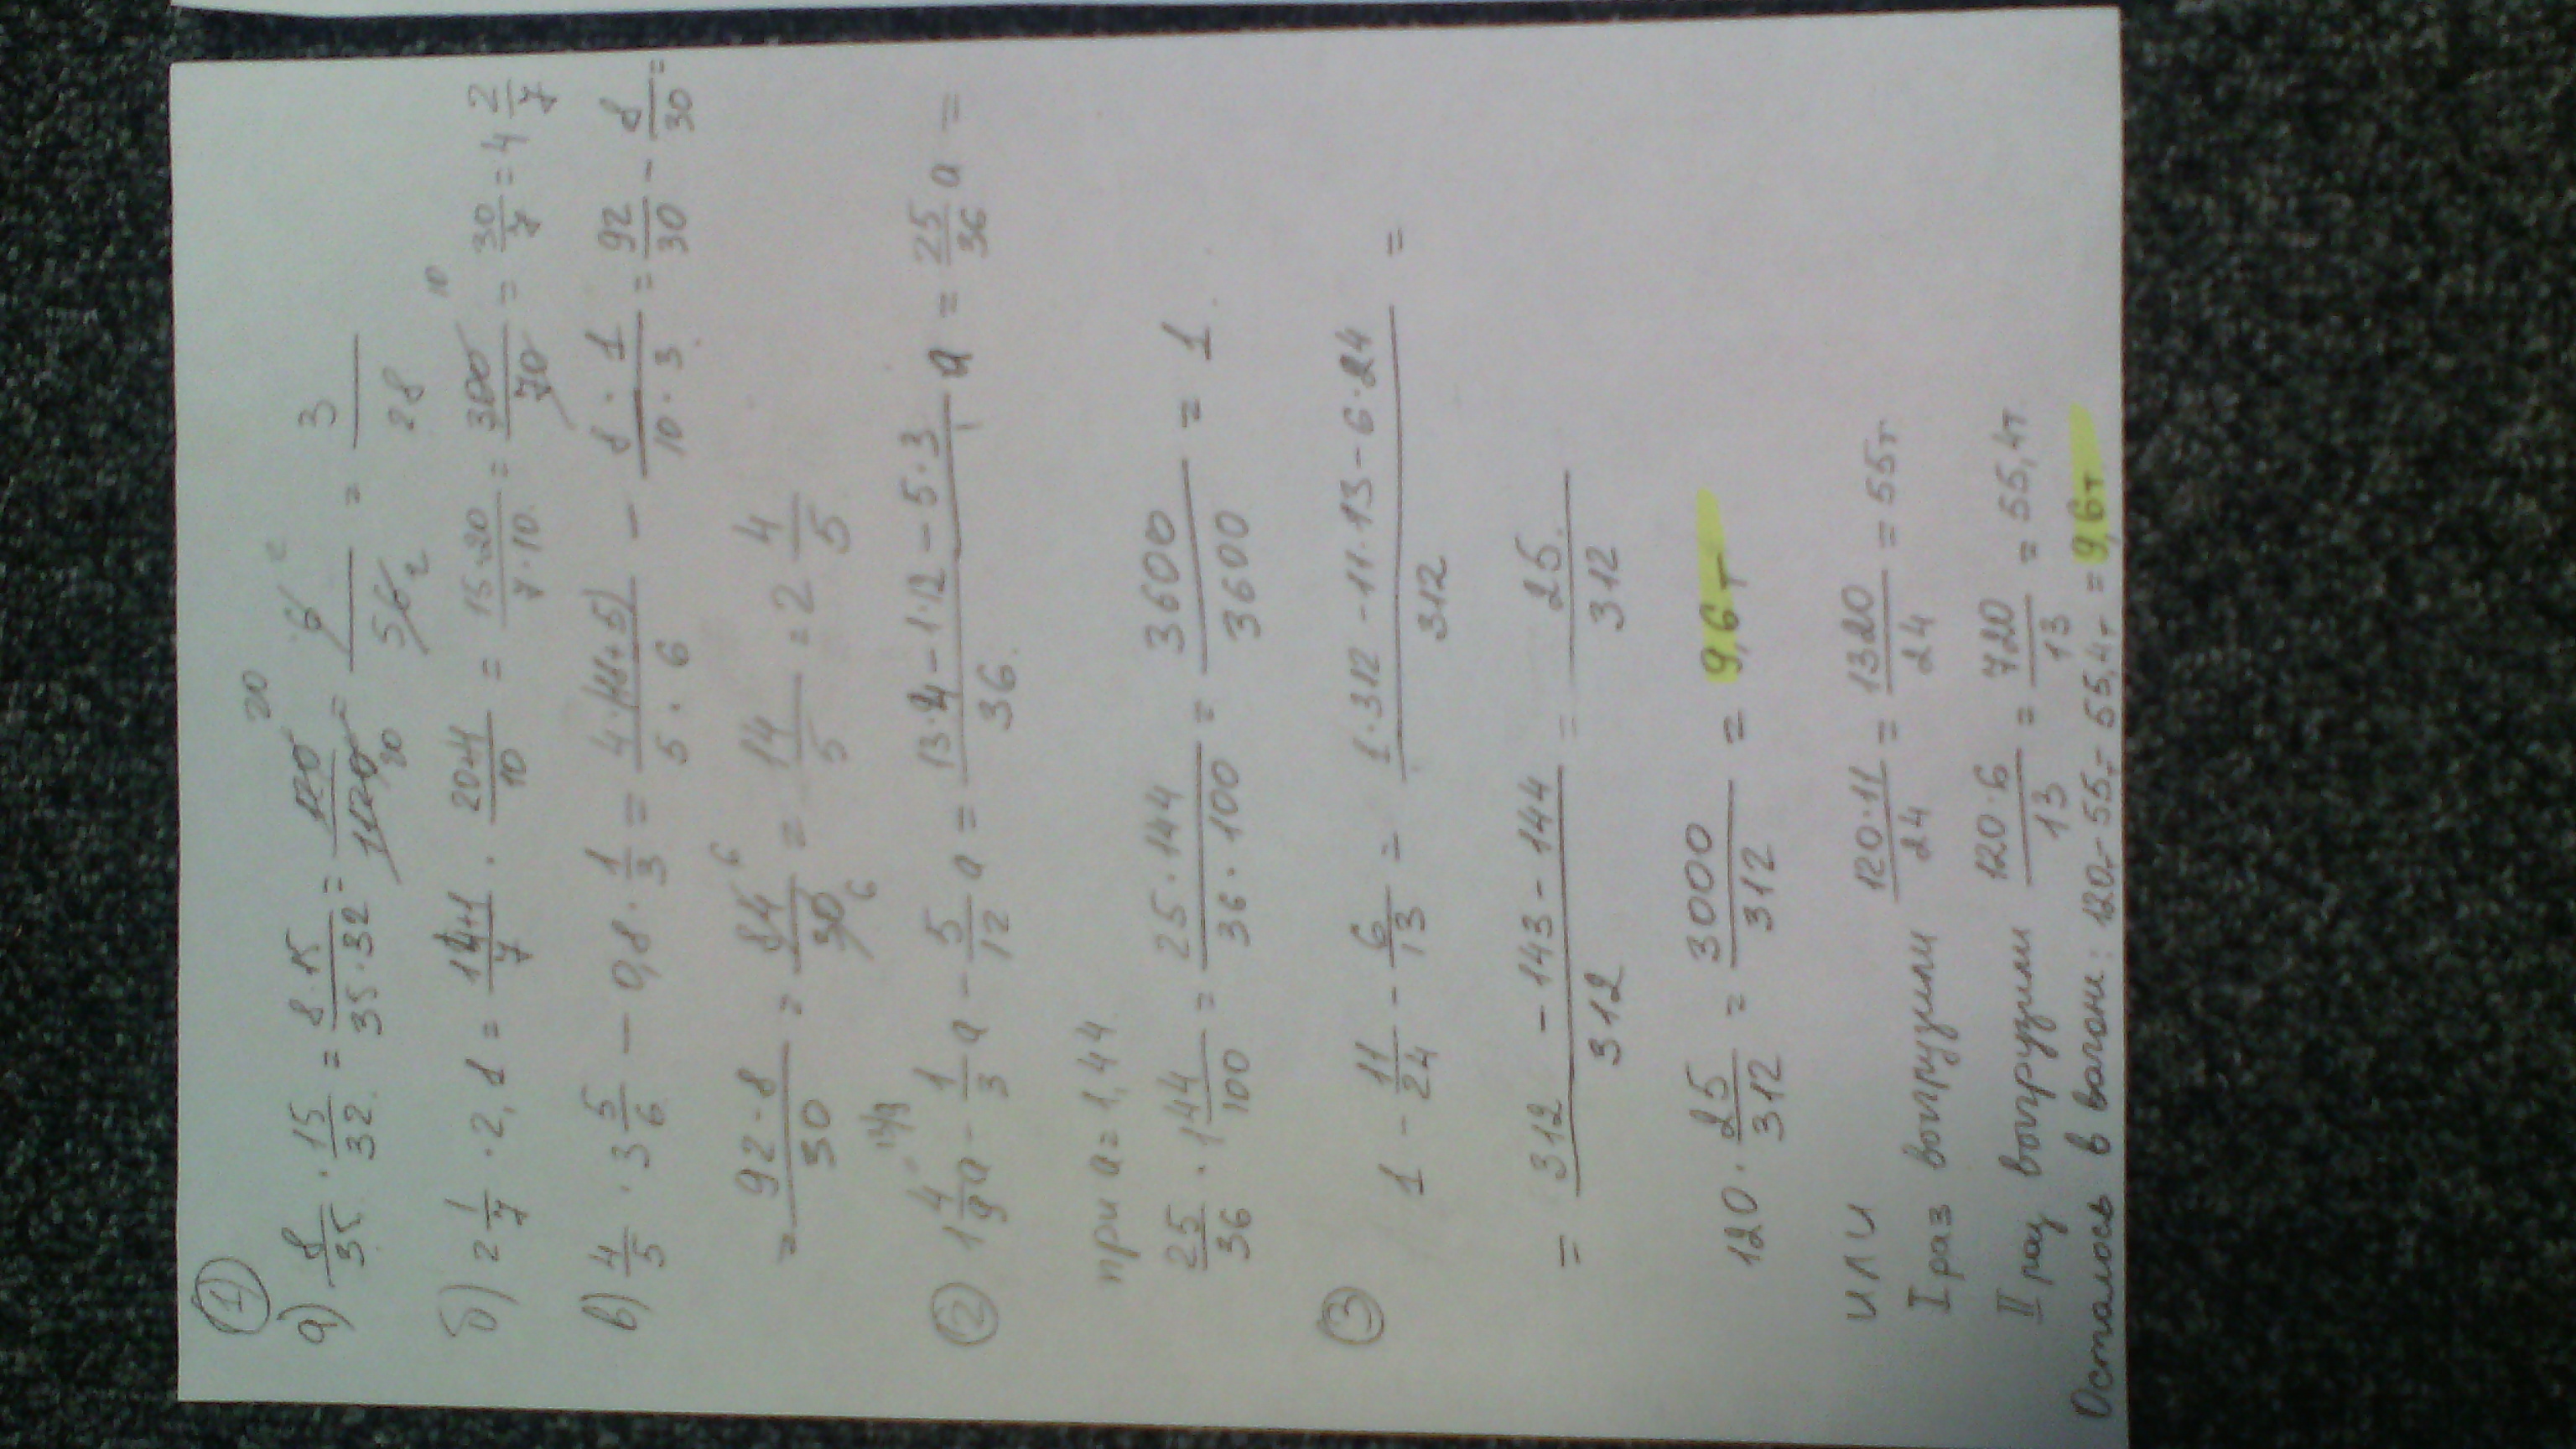 ①
а) 8/35 · 15/32 = 8·15/35·32 = 120/1120 = 6/56 = 3/28
б) 2 1/7 · 2,1 = 14+1/7 · 20+1/10 = 15·20/7·10 = 300/70 = 30/7 = 4 2/7
в) 4/5 · 3 5/6 – 0,8 · 1/3 = 4·(18+5)/5·6 – 8·1/10·3 = 92/30 – 8/30 =
= 92-8/30 = 84/30 = 14/5 = 2 4/5
② 1 4/9 a – 1/3 a – 5/12 a = 13·4 – 1·12 – 5·3/36 a = 25/36 a =
при a = 1,44
25/36 · 1 44/100 = 25·144/36·100 = 3600/3600 = 1
③ 1 - 11/24 - 6/13 = 1·312 - 11·13 - 6·24/312 =
= 312 - 143 - 144/312 = 25/312
120 · 25/312 = 3000/312 = 9,6 т
или
I раз выгрузили 120·11/24 = 1320/24 = 55т
II раз выгрузили 120·6/13 = 720/13 = 55,4т
Осталось в вагоне: 120т - 55т - 55,4т = 9,6т